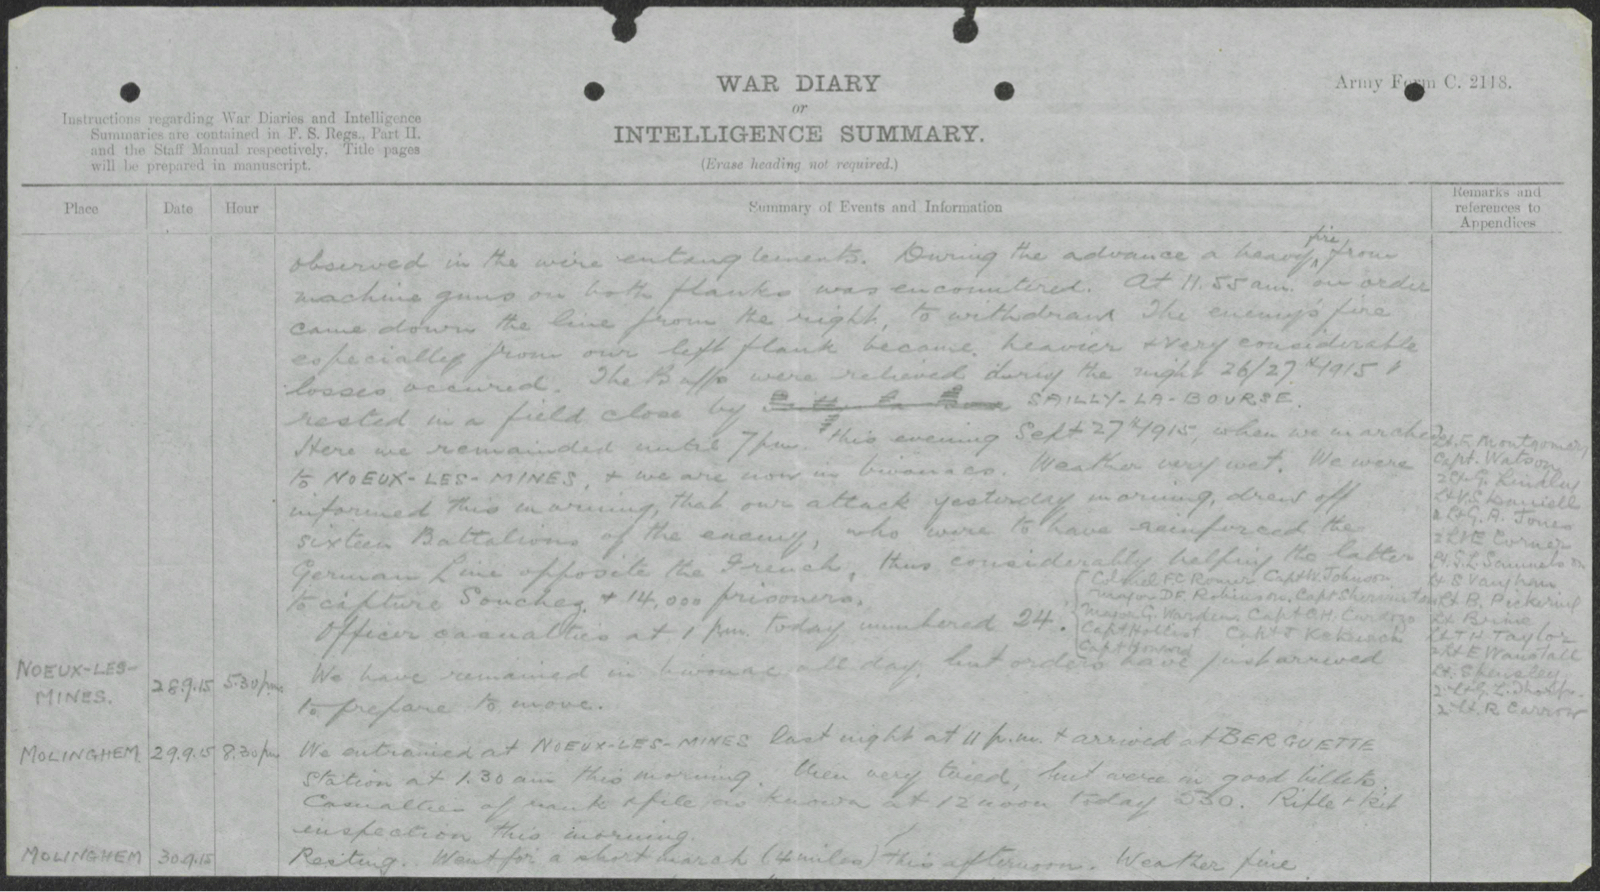 WAR DIARY
or
INTELLIGENCE SUMMARY.
(Erase heading not required.)
Army Form C. 2118.
Instructions regarding War Diaries and Intelligence
Summaries are contained in F. S. Regs., Part II.
and the Staff Manual respectively. Title pages
will be prepared in manuscript.
Place
Date
Hour
Summary of Events and Information
Remarks and
references to
Appendices
observed in the wire entanglements. During the advance a heavy fire from
machine guns on both flanks was encountered. At 11.55 am. an order
came down the line from the right, to withdraw The enemy's fire
especially from our left flank became heavier & very considerable
losses occured. The Buffs were relieved during the night 26/27th 1915
rested in a field close by SAILLY-LA-BOURSE.
Here we remainded until 7 pm. this evening Sept 27th 1915, when we marched
to NOEUX-LES-MINES, & we are now in bivouacs. Weather very wet. We were
informed this morning, that our attack yesterday morning, drew off
sixteen Battalions of the enemy, who were to have reinforced the
German Line opposite the French, thus considerably helping the latter
to capture Souchez, & 14,000 prisoners.
Officer casualties at 1 pm. today numbered 24.
Colonel F.C. Romer Capt W. Johnson
Major D.F. Robinson, Capt Sherington
Major G. Warden, Capt C.H. Cardozo
Capt Hollist Capt J
Capt Howard
Lt. F. Montgomery
Capt. Watson
2 Lt G. Lindley
Lt V.S. Daniell
2 Lt G. A. Jones
2 Lt E Corner
Lt S.L. Samuelson
Lt. S Vaughan
Lt B. Pickering
Lt Brine
Lt T.H. Taylor
2 Lt E Wanstall
Lt. Spensley
2 Lt G. L.
2 Lt. R Carrow
NOEUX-LES-
MINES. 28.9.15 5.30 pm. We have remained in bivouac all day, but orders have just arrived
to prepare to move.
MOLINGHEM 29.9.15 8.30 pm We entrained at NOEUX-LES-MINES last night at 11 p.m. & arrived at BERGUETTE
Station at 1.30 am this morning. Men very tired, but were in good billets.
Casualties of rank & file, as known at 12 noon today 530. Rifle & kit
inspection this morning.
MOLINGHEM 30.9.15 Resting. Went for a short march (4 miles) this afternoon. Weather fine.